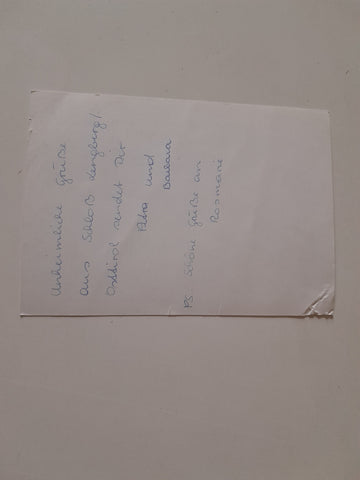 Unheimliche Grüße
aus Schloß Lengberg/
Osttirol sendet Dir
Petra und
Barbara
PS. Schöne Grüße an
Rosmarie